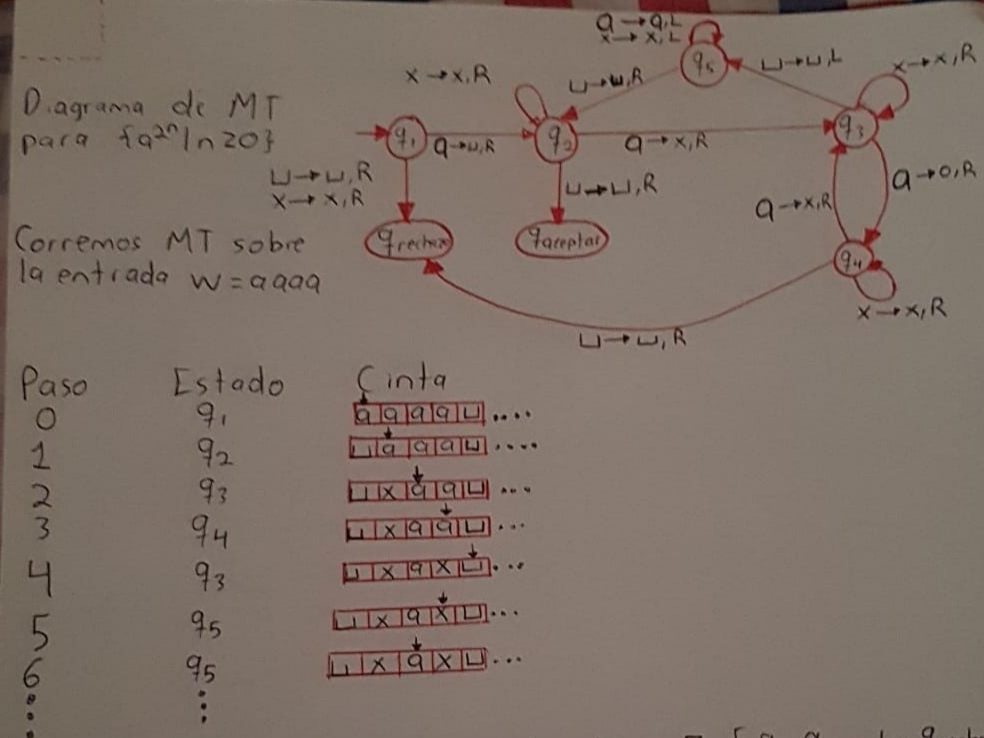 Diagrama de MT
para {a²ⁿ|n≥0}
a→a,L
x→x,L
q5
⊔→⊔,L
x→x,R
x→x,R
⊔→⊔,R
q1
a→⊔,R
q2
a→x,R
q3
⊔→⊔,R
x→x,R
⊔→⊔,R
a→x,R
a→0,R
qrechazo
qaceptar
q4
x→x,R
⊔→⊔,R
Corremos MT sobre
la entrada w=aaaa
Paso Estado Cinta
0 q1 aaaa⊔....
1 q2 ⊔aaa⊔....
2 q3 ⊔xaa⊔...
3 q4 ⊔xaa⊔...
4 q3 ⊔xax⊔...
5 q5 ⊔xax⊔...
6 q5 ⊔xax⊔...